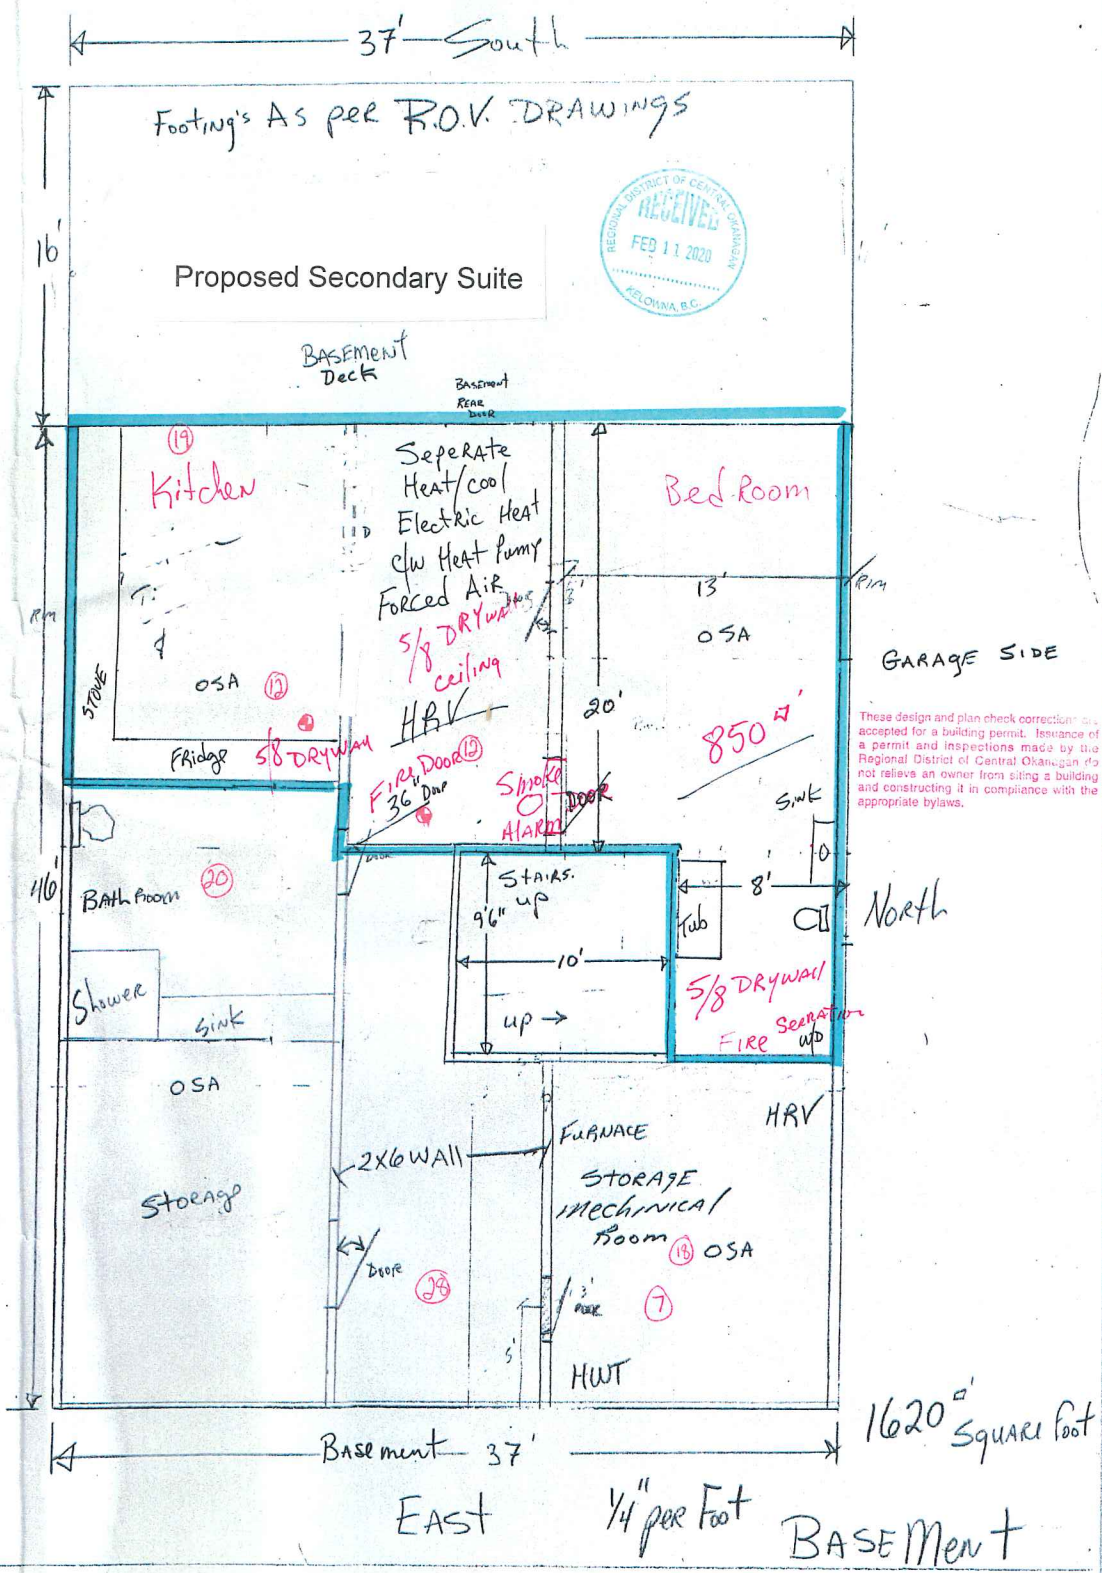 37' South
Footing's As per R.O.V. DRAWINGS
REGIONAL DISTRICT OF CENTRAL OKANAGAN
RECEIVED
FEB 11 2020
KELOWNA, B.C.
16'
Proposed Secondary Suite
BASEMENT
Deck
BASEMENT
REAR
DOOR
19
Kitchen
Seperate
Heat/cool
Electric Heat
c/w Heat Pump
Forced Air
5/8 DRYWAll
ceiling
HRV
Bed Room
13'
Rim
Rim
OSA
GARAGE SIDE
STOVE
OSA 12
20'
850 □'
These design and plan check corrections are
accepted for a building permit. Issuance of
a permit and inspections made by the
Regional District of Central Okanagan do
not relieve an owner from siting a building
and constructing it in compliance with the
appropriate bylaws.
Fridge 5/8 DRYWAll
Fire Door 12
36" Door
Smoke
AlARM
DOOR
Sink
Door
46'
BathRoom 20
STAIRS.
up
9'6"
10'
up →
Tub
8'
North
Shower
Sink
5/8 DRYWAll
FIRE SePRATion
W/D
OSA
HRV
FURNACE
2X6 WAll
STORAGE
STORAGE
MechiNICAl
Room 18 OSA
Door
28
3'
Door
7
5'
HWT
1620 □'
SQUARE foot
Basement 37'
EAST
1/4" per Foot
BASEMenT